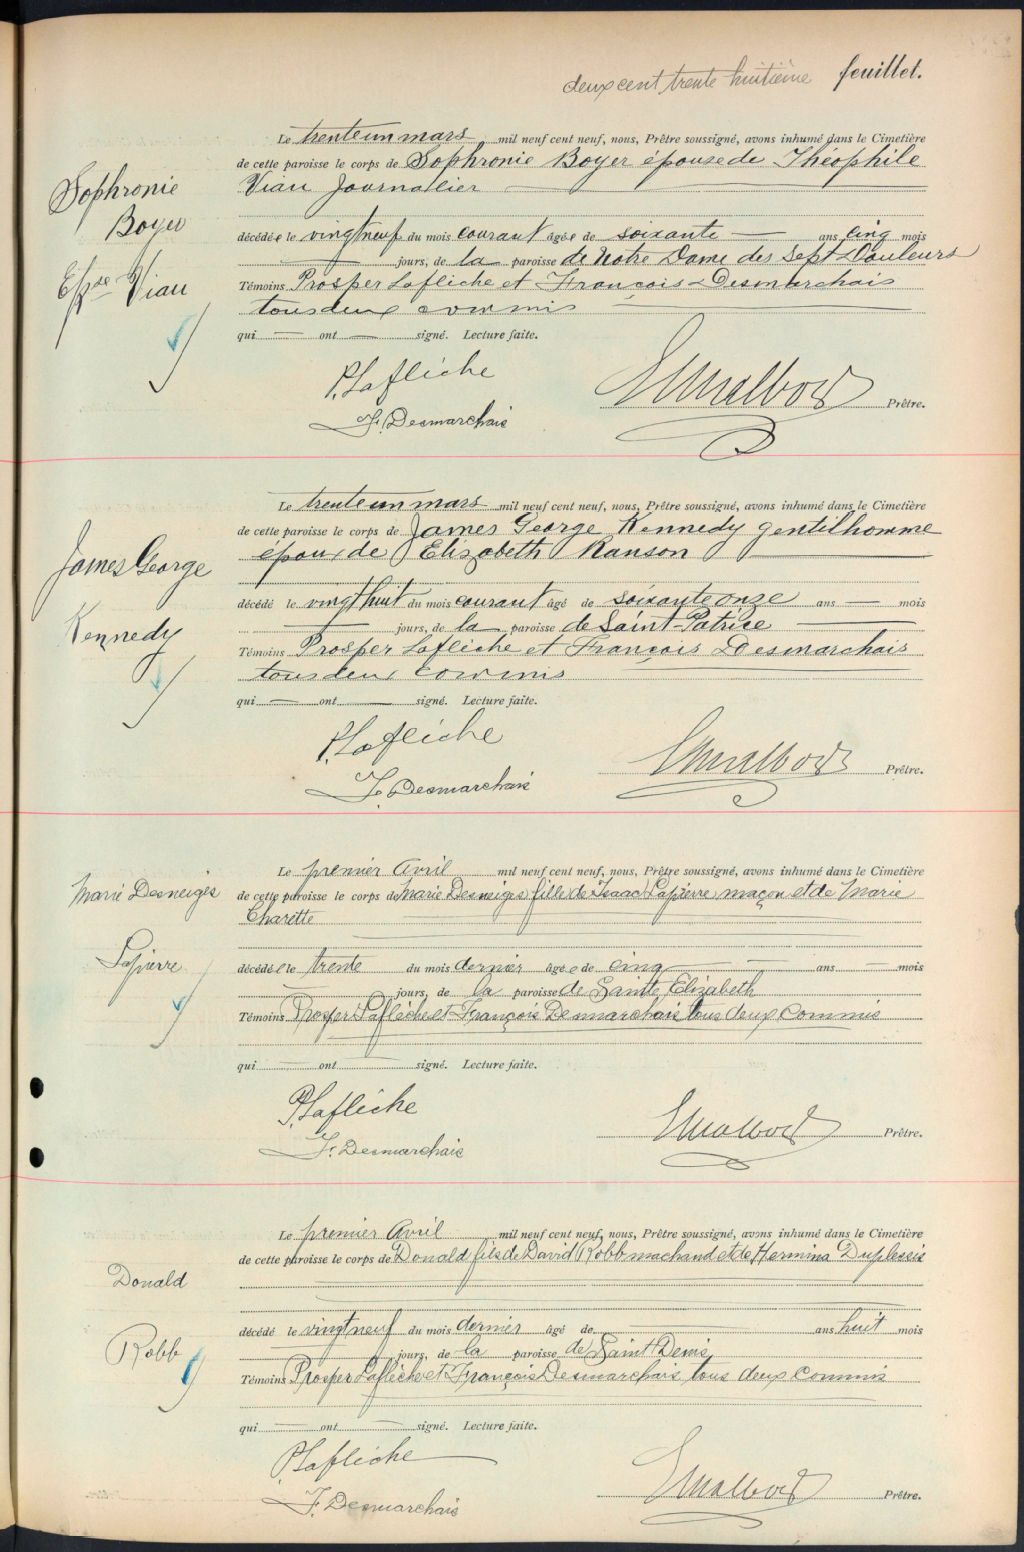 deux cent trente huitième feuillet.
Sophronie
Boyer
Epse Vian
Le trente un mars mil neuf cent neuf, nous, Prêtre soussigné, avons inhumé dans le Cimetière
de cette paroisse le corps de Sophronie Boyer épouse de Théophile
Vian Journalier
décédée le vingt neuf du mois courant âgée de soixante — ans cinq mois
— jours, de la paroisse de Notre Dame des Sept Douleurs
Témoins Prosper Laflèche et François Desmarchais
tous deux commis
qui — ont — signé. Lecture faite.
P. Laflèche
F. Desmarchais
Prêtre.
James George
Kennedy
Le trente un mars mil neuf cent neuf, nous, Prêtre soussigné, avons inhumé dans le Cimetière
de cette paroisse le corps de James George Kennedy gentilhomme
époux de Elizabeth Ranson
décédé le vingt huit du mois courant âgé de soixante onze ans — mois
— jours, de la paroisse de Saint-Patrice —
Témoins Prosper Laflèche et François Desmarchais
tous deux commis
qui — ont — signé. Lecture faite.
P. Laflèche
F. Desmarchais
Prêtre.
Marie Desneiges
Lapierre
Le premier Avril mil neuf cent neuf, nous, Prêtre soussigné, avons inhumé dans le Cimetière
de cette paroisse le corps de Marie Desneiges fille de Isaac Lapierre maçon et de Marie
Charette
décédée le trente du mois dernier âgée de cinq — — ans — mois
— jours, de la paroisse de Sainte Elizabeth
Témoins Prosper Laflèche et François Desmarchais tous deux commis
qui — ont — signé. Lecture faite.
P. Laflèche
F. Desmarchais
Prêtre.
Donald
Robb
Le premier Avril mil neuf cent neuf, nous, Prêtre soussigné, avons inhumé dans le Cimetière
de cette paroisse le corps de Donald fils de David Robb machand et de Hermina Duplessis
décédé le vingt neuf du mois dernier âgé de — ans huit mois
— jours, de la paroisse de Saint Denis
Témoins Prosper Laflèche et François Desmarchais tous deux commis
qui — ont — signé. Lecture faite.
P. Laflèche
F. Desmarchais
Prêtre.